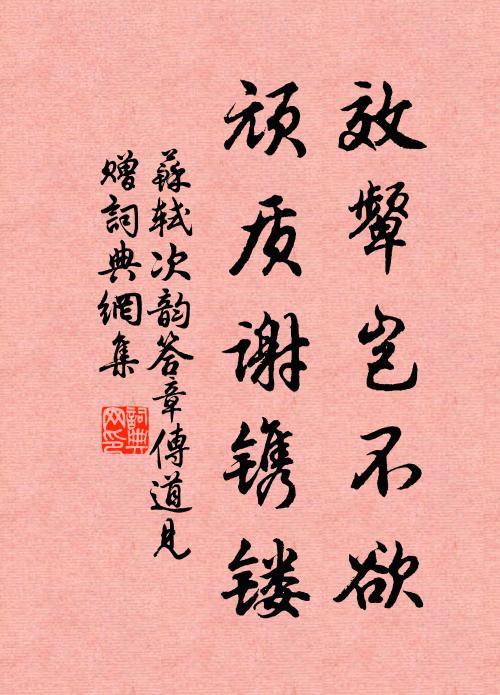 效颦岂不欲
顽质谢镌镂
蘇軾次韵答章傳道見
赠詞典網集
詞典
网印